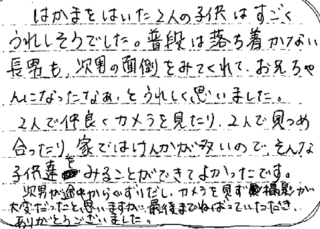 はかまをはいた2人の子供はすごく
うれしそうでした。普段は落ち着かない
長男も、次男の面倒をみてくれて、お兄ちゃ
んになったなぁ、とうれしく思いました。
2人で仲良くカメラを見たり、2人で見つめ
合ったり、家ではけんかが多いので、そんな
子供達をみることができてよかったです。
次男が途中からぐずりだし、カメラを見ず撮影が
大変だったと思いますが、最後までねばっていただき
ありがとうございました。